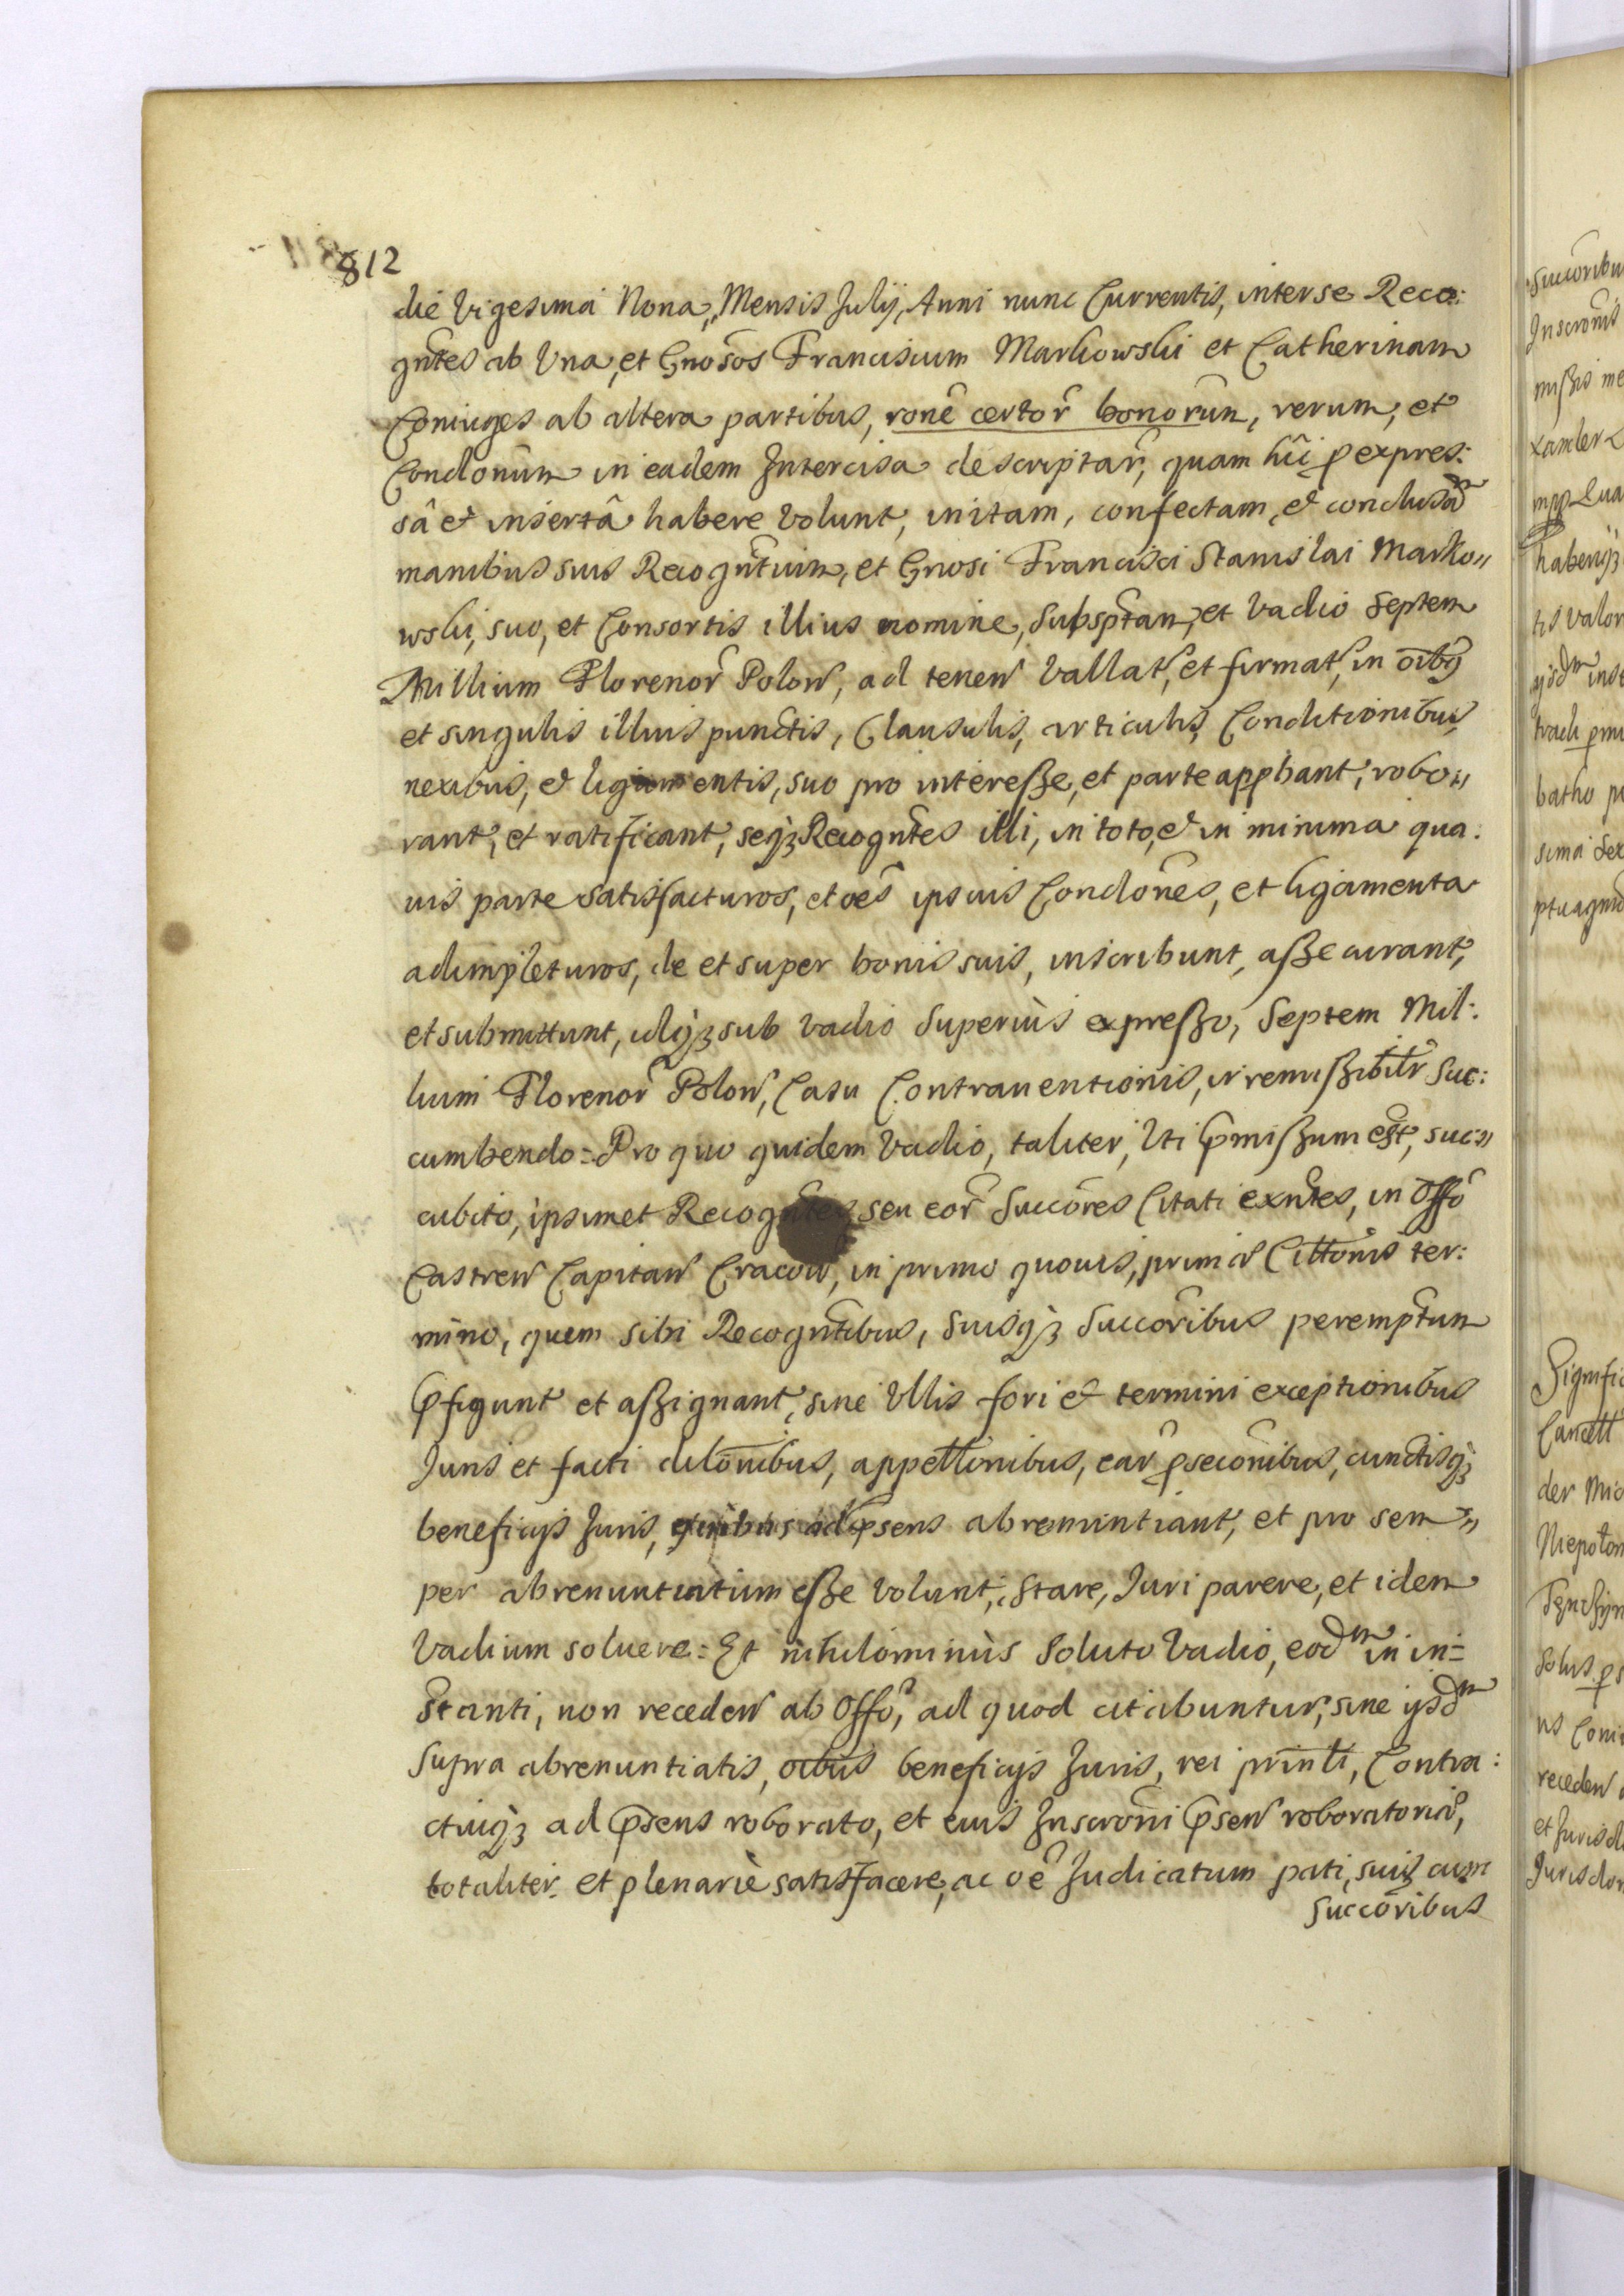 812
die Vigesima Nona, Mensis Julij, Anni nunc Currentis, inter se Reco:
gñtes ab Una, et Gnosos Franciscum Markowski et Catherinam
Coniuges ab altera partibus, rone certor bonorum, rerum, et
Condonum in eadem Intercisa descriptar, quam hic p expres:
sâ et insertâ habere volunt, initam, confectam, et conclusam
manibus suis Recogntium, et Gnosi Francisci Stanislai Marko„
wski, suo, et Consortis illius nomine, subsptam, et Vadio Septem
Millium Florenor Polon, ad tenen Vallat, et firmat, in oibq
et singulis illius punctis, Clausulis, articulis, Conditionibus,
nexibus, et ligamentis, suo pro interesse, et parte apphant, robo„
rant, et ratificant, seqз Recogntes illi, in toto, et in minima qua:
uis parte satisfacturos, et oes ipsius Condones, et ligamenta
adimpleturos, de et super bonis suis, inscribunt, assecurant,
et submittunt, idqз sub vadio superius expresso, Septem Mil:
lium Florenor Polon, Casu Contrauentionis, irremissibiltr suc:
cumbendo: Pro quo quidem Vadio, taliter, Uti pmissum est, suc„
cubito, ipsimet Recogntes seu eor Succores Citati exntes, in Offo
Castren Capitan Cracov, in primo quouis, primæ Cittonis ter:
mino, quem sibi Recogntibus, suisqз Succoribus peremptum
pfigunt et assignant, sine Ullis fori et termini exceptionibus
Juris et facti dilonibus, appellonibus, ear psecõnibus, cunctisqз
beneficijs Juris, quibus ad psens abrenuntiant, et pro sem„
per abrenuntiatum esse volunt, Stare, Juri parere, et idem
Vadium soluere: Et nihilominus Soluto Vadio, eodm in in=
stanti, non receden ab Offo, ad quod citabuntur, sine ijsdm
supra abrenuntiatis, oibus beneficijs Juris, rei prinli, Contra:
ctuiqз ad psens roborato, et eius Inscroni psen roboratoriæ,
totaliter et plenarie satisfacere, ac oe Judicatum pati, suis cum
succoribus